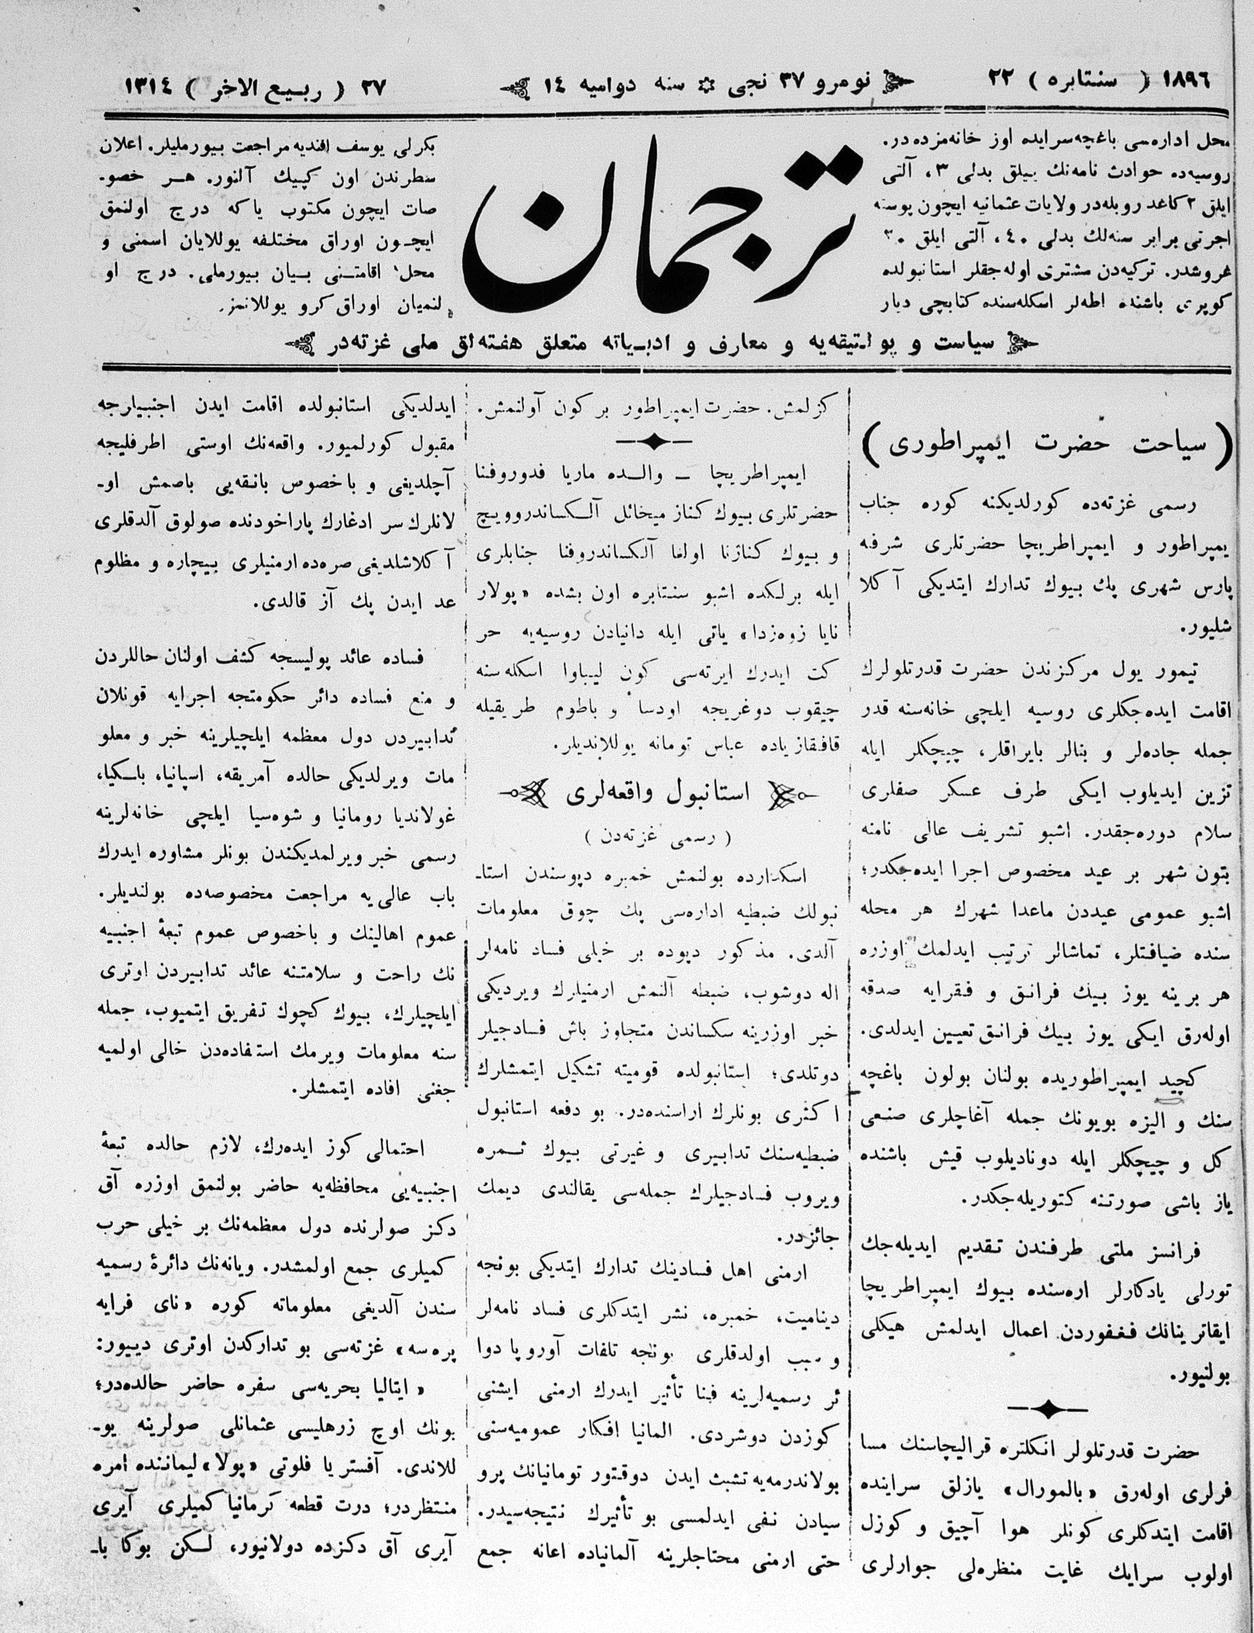 ١٨٩٦ ( سنتابره ) ٢٢
نومرو ٣٧ نجی ✡ سنه دوامیه ١٤
٢٧ ( ربیع الاخر ) ١٣١٤
محل اداره‌سی باغچه‌سرایده اوز خانه‌مزده‌در.
روسیه‌ده حوادث نامه‌نك ییلق بدلی ٣، آلتی
ایلق ٢ كاغد روبله‌در ولایات عثمانیه ایچون پوسته
اجرتی برابر سنه‌لك بدلی ٤٠، آلتی ایلق ٣٠
غروشدر. تركیه‌دن مشتری اوله‌جقلر استانبولده
كوپری باشنده اطه‌لر اسكله‌سنده كتابچی دیار
ترجمان
بكرلی یوسف افندیه مراجعت بیورملیلر. اعلان
سطرندن اون كپیك آلنور. هر خصو-
صات ایچون مكتوب یاكه درج اولنمق
ایچون اوراق مختلفه یوللایان اسمنی و
محل اقامتنی بیان بیورملی. درج او
لنمیان اوراق كرو یوللانمز.
سیاست و پولیتیقه‌یه و معارف و ادبیاته متعلق هفته‌لق ملی غزته‌در
( سیاحت حضرت ایمپراطوری )
رسمی غزته‌ده كورلدیكنه كوره جناب
یمپراطور و ایمپراطریچا حضرتلری شرفه
پارس شهری پك بیوك تدارك ایتدیكی آكلا
شلیور.
تیمور یول مركزندن حضرت قدرتلولرك
اقامت ایده‌جكلری روسیه ایلچی خانه‌سنه قدر
جمله جاده‌لر و بنالر بایراقلر، چیچكلر ایله
تزین ایدیلوب ایكی طرف عسكر صفلری
سلام دوره‌جقدر. اشبو تشریف عالی نامنه
بتون شهر بر عید مخصوص اجرا ایده‌جكدر؛
اشبو عمومی عیددن ماعدا شهرك هر محله
سنده ضیافتلر، تماشالر ترتیب ایدلمك اوزره
هر برینه یوز بیك فرانق و فقرایه صدقه
اوله‌رق ایكی یوز بیك فرانق تعیین ایدلدی.
كچید ایمپراطوریده بولنان بولون باغچه
سنك و الیزه بویونك جمله آغاچلری صنعی
كل و چیچكلر ایله دونادیلوب قیش باشنده
یاز باشی صورتنه كتوریله‌جكدر.
فرانسز ملتی طرفندن تقدیم ایدیله‌جك
تورلی یادكارلر اره‌سنده بیوك ایمپراطریچا
ایقاترینانك فغفوردن اعمال ایدلمش هیكلی
بولنیور.
حضرت قدرتلولر انكلتره قرالیچاسنك مسا
فرلری اوله‌رق «بالمورال» یازلق سراینده
اقامت ایتدكلری كونلر هوا آچیق و كوزل
اولوب سرایك غایت منظره‌لی جوارلری
كزلمش. حضرت ایمپراطور بر كون آولنمش.
ایمپراطریچا — والده ماریا فدوروفنا
حضرتلری بیوك كناز میخائل آلكساندروویچ
و بیوك كنازنا اولغا آلكساندروفنا جنابلری
ایله برلكده اشبو سنتابره اون بشده «پولار
نایا زوه‌زدا» یاتی ایله دانیادن روسیه‌یه حر
كت ایدرك ایرته‌سی كون لیباوا اسكله‌سنه
چیقوب دوغریجه اودسا و باطوم طریقیله
قافقازیاده عباس تومانه یوللاندیلر.
استانبول واقعه‌لری
( رسمی غزته‌دن )
اسكدارده بولنمش خمبره دپوسندن استا-
نبولك ضبطیه اداره‌سی پك چوق معلومات
آلدی. مذكور دپوده بر خیلی فساد نامه‌لر
اله دوشوب، ضبطه آلنمش ارمنیلرك ویردیكی
خبر اوزرینه سكساندن متجاوز باش فسادجیلر
دوتلدی؛ استانبولده قومیته تشكیل ایتمشلرك
اكثری بونلرك اراسنده‌در. بو دفعه استانبول
ضبطیه‌سنك تدابیری و غیرتی بیوك ثمره
ویروب فسادجیلرك جمله‌سی یقالندی دیمك
جائزدر.
ارمنی اهل فسادینك تدارك ایتدیكی بونجه
دینامیت، خمبره، نشر ایتدكلری فساد نامه‌لر
و سبب اولدقلری بونجه تلفات آوروپا دوا
ئر رسمیه‌لرینه فنا تأثیر ایدرك ارمنی ایشنی
كوزدن دوشردی. المانیا افكار عمومیه‌سنی
بولاندرمه‌یه تشبث ایدن دوقتور تومانیانك پرو
سیادن نفی ایدلمسی بو تأثیرك نتیجه‌سیدر.
حتی ارمنی محتاجلرینه آلمانیاده اعانه جمع
ایدلدیكی استانبولده اقامت ایدن اجنبیارجه
مقبول كورلمیور. واقعه‌نك اوستی اطرفلیجه
آچلدیغی و باخصوص بانقه‌یی باصمش او-
لانلرك سر ادغارك پاراخودنده صولوق آلدقلری
آكلاشلدیغی صره‌ده ارمنیلری بیچاره و مظلوم
عد ایدن پك آز قالدی.
فساده عائد پولیسجه كشف اولنان حاللردن
و منع فساده دائر حكومتجه اجرایه قونلان
تدابیردن دول معظمه ایلچیلرینه خبر و معلو
مات ویرلدیكی حالده آمریقه، اسپانیا، بلكیا،
غولاندیا رومانیا و شوه‌سیا ایلچی خانه‌لرینه
رسمی خبر ویرلمدیكندن بونلر مشاوره ایدرك
باب عالی‌یه مراجعت مخصوصه‌ده بولندیلر.
عموم اهالینك و باخصوص عموم تبعهٔ اجنبیه
نك راحت و سلامتنه عائد تدابیردن اوتری
ایلچیلرك، بیوك كچوك تفریق ایتمیوب، جمله
سنه معلومات ویرمك استفاده‌دن خالی اولمیه
جغنی افاده ایتمشلر.
احتمالی كوز ایده‌رك، لازم حالده تبعهٔ
اجنبیه‌یی محافظه‌یه حاضر بولنمق اوزره آق
دكز صولرنده دول معظمه‌نك بر خیلی حرب
كمیلری جمع اولمشدر. ویانه‌نك دائرهٔ رسمیه
سندن آلدیغی معلوماته كوره «نای فرایه
پره‌سه» غزته‌سی بو تداركدن اوتری دییور:
« ایتالیا بحریه‌سی سفره حاضر حالده‌در؛
بونك اوچ زرهلیسی عثمانلی صولرینه یو-
للاندی. آفستریا فلوتی «پولا» لیماننده امره
منتظردر؛ درت قطعه كرمانیا كمیلری آیری
آیری آق دكزده دولانیور، لكن بوكا با-